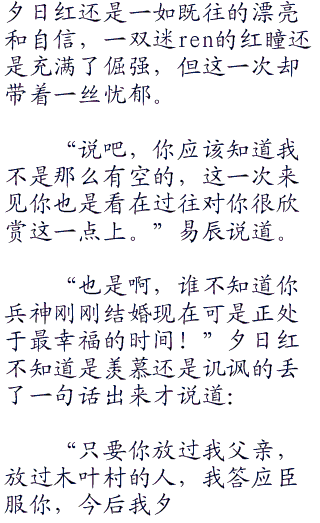 夕日红还是一如既往的漂亮
和自信，一双迷ren的红瞳还
是充满了倔强，但这一次却
带着一丝忧郁。
“说吧，你应该知道我
不是那么有空的，这一次来
见你也是看在过往对你很欣
赏这一点上。”易辰说道。
“也是啊，谁不知道你
兵神刚刚结婚现在可是正处
于最幸福的时间！”夕日红
不知道是羡慕还是讥讽的丢
了一句话出来才说道：
“只要你放过我父亲，
放过木叶村的人，我答应臣
服你，今后我夕